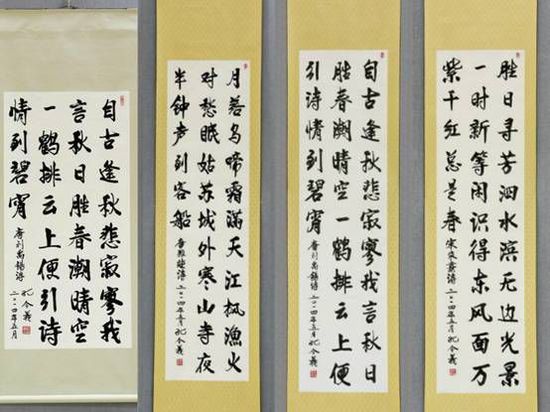 自古逢秋悲寂寥我
言秋日胜春潮晴空
一鹤排云上便引诗
情到碧宵 唐刘禹锡诗
二〇〇四年五月 孔令義
月落乌啼霜满天江枫漁火
对愁眠姑苏城外寒山寺夜
半钟声到客船 唐张继诗 二〇〇四年五月 孔令義
自古逢秋悲寂寥我言秋日
胜春潮晴空一鹤排云上便
引诗情到碧宵 唐刘禹锡诗 二〇〇四年五月 孔令義
胜日寻芳泗水滨无边光景
一时新等闲识得东风面万
紫千红总是春 宋朱熹诗 二〇〇四年五月 孔令義